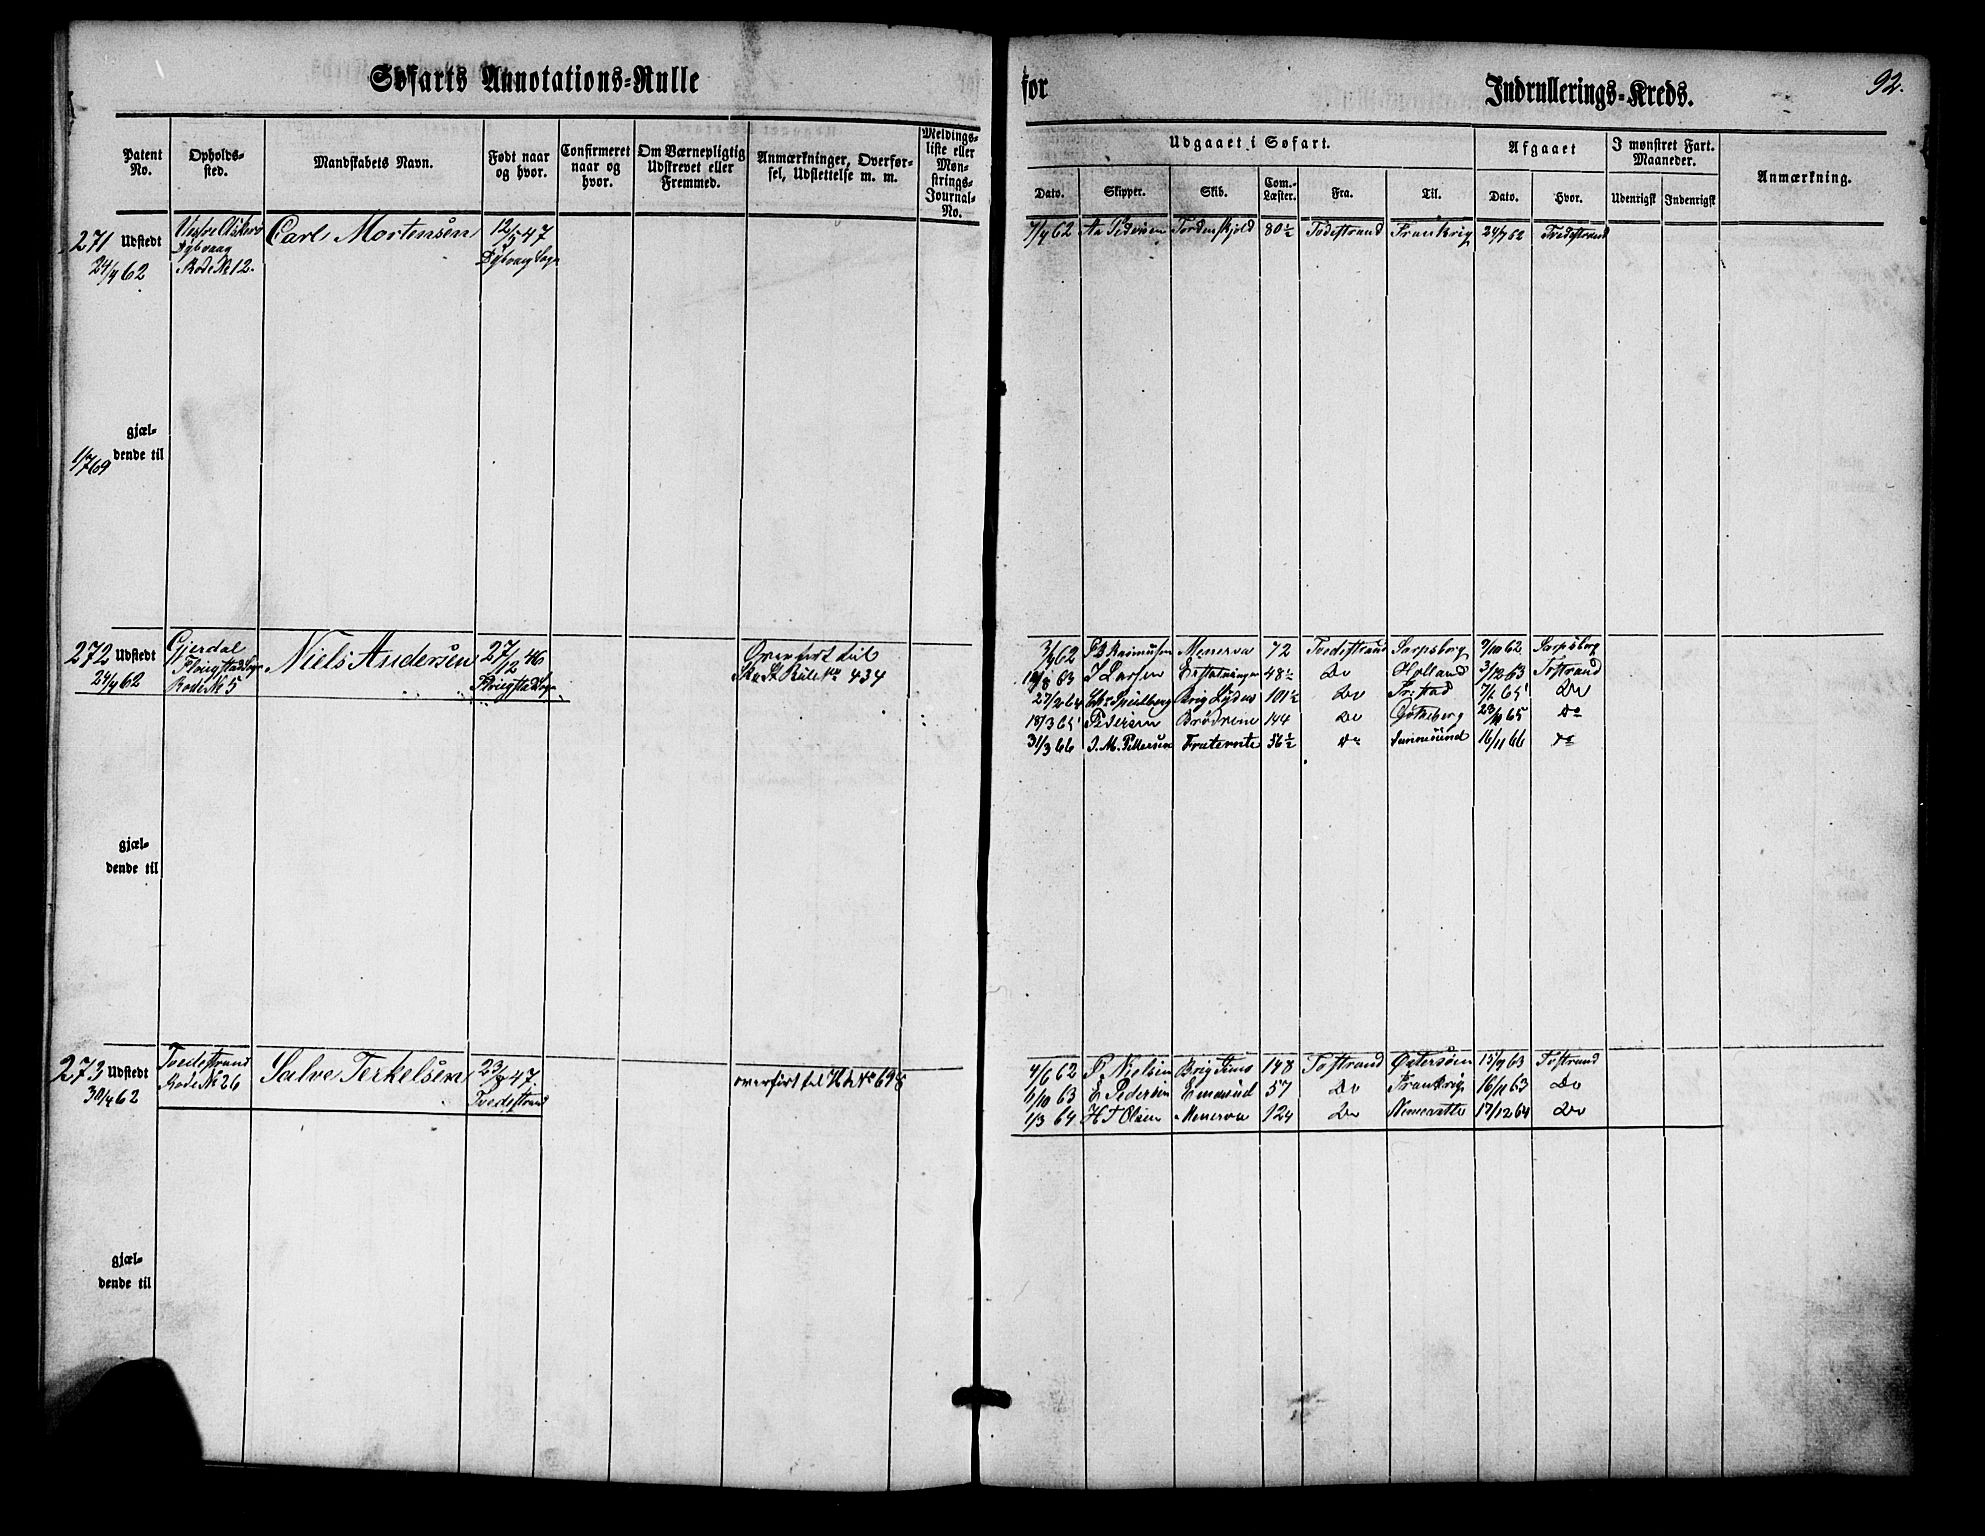 Søfarts Annotations-Rulle
for Indrullerings-Kreds. 92.
Patent No. Opholds-sted. Mandskabets Navn. Født naar og hvor. Confirmeret naar og hvor. Om Værnepligtig Udskrevet eller Fremmed. Anmærkninger, Overførsel, Udslettelse m. m. Meldingsliste eller Mønstrings-Journal-No.
Udgaaet i Søfart. Afgaaet I mønstret Fart. Maaneder. Anmærkning.
Dato. Skipper. Skib. Com.-Læster. Fra. Til. Dato. Hvor. Udenrigsk Indenrigsk
271 Udstedt Carl Mortensen 12/5 47
24/4 62 Dybvaag Rode No 12. Dybvaag Sogn
7/4 62 Aa Pedersen Tordenskjold 80½ Tvdestrand Frankrig 24/7 62 Tvedestrand
gjæl-
dende til
1/7 69
272 Udstedt Gjerdal Niels Andersen 27/2 46 Overført til
24/4 62 Flougstad Sogn Rode No 5 Flougstad Sogn Rulle No 434
3/4 62 Rasmussen Menerva 72 Tvedestrand Sarpsborg 9/10 62 Sarpsborg
19/8 63 J Larsen Erstatningen 48½ Do Holland 3/12 63 Tostrand
27/2 64 Speilberg Brig Lydus 101½ Do Fr:stad 7/1 65 Do
18/3 65 Pedersen Brødrene 144 Do Gøteborg 23/10 65 Do
31/3 66 J. M. Pettersen Fraternite 56½ Do 16/11 66 Do
gjæl-
dende til
273 Udstedt Tvedestrand Salve Terkelsen 23/8 47 overført til No 698
30/4 62 Rode No 26 Tvedestrand
4/6 62 Nielsen Brig Timo 148 Tostrand Østersøen 15/9 63 Tostrand
6/10 63 E Pedersen 57 Do Frankrig 16/11 63 Do
1/3 64 H T Olsen Menerva 124 Do Newcastle 17/12 64 Do
gjæl-
dende til